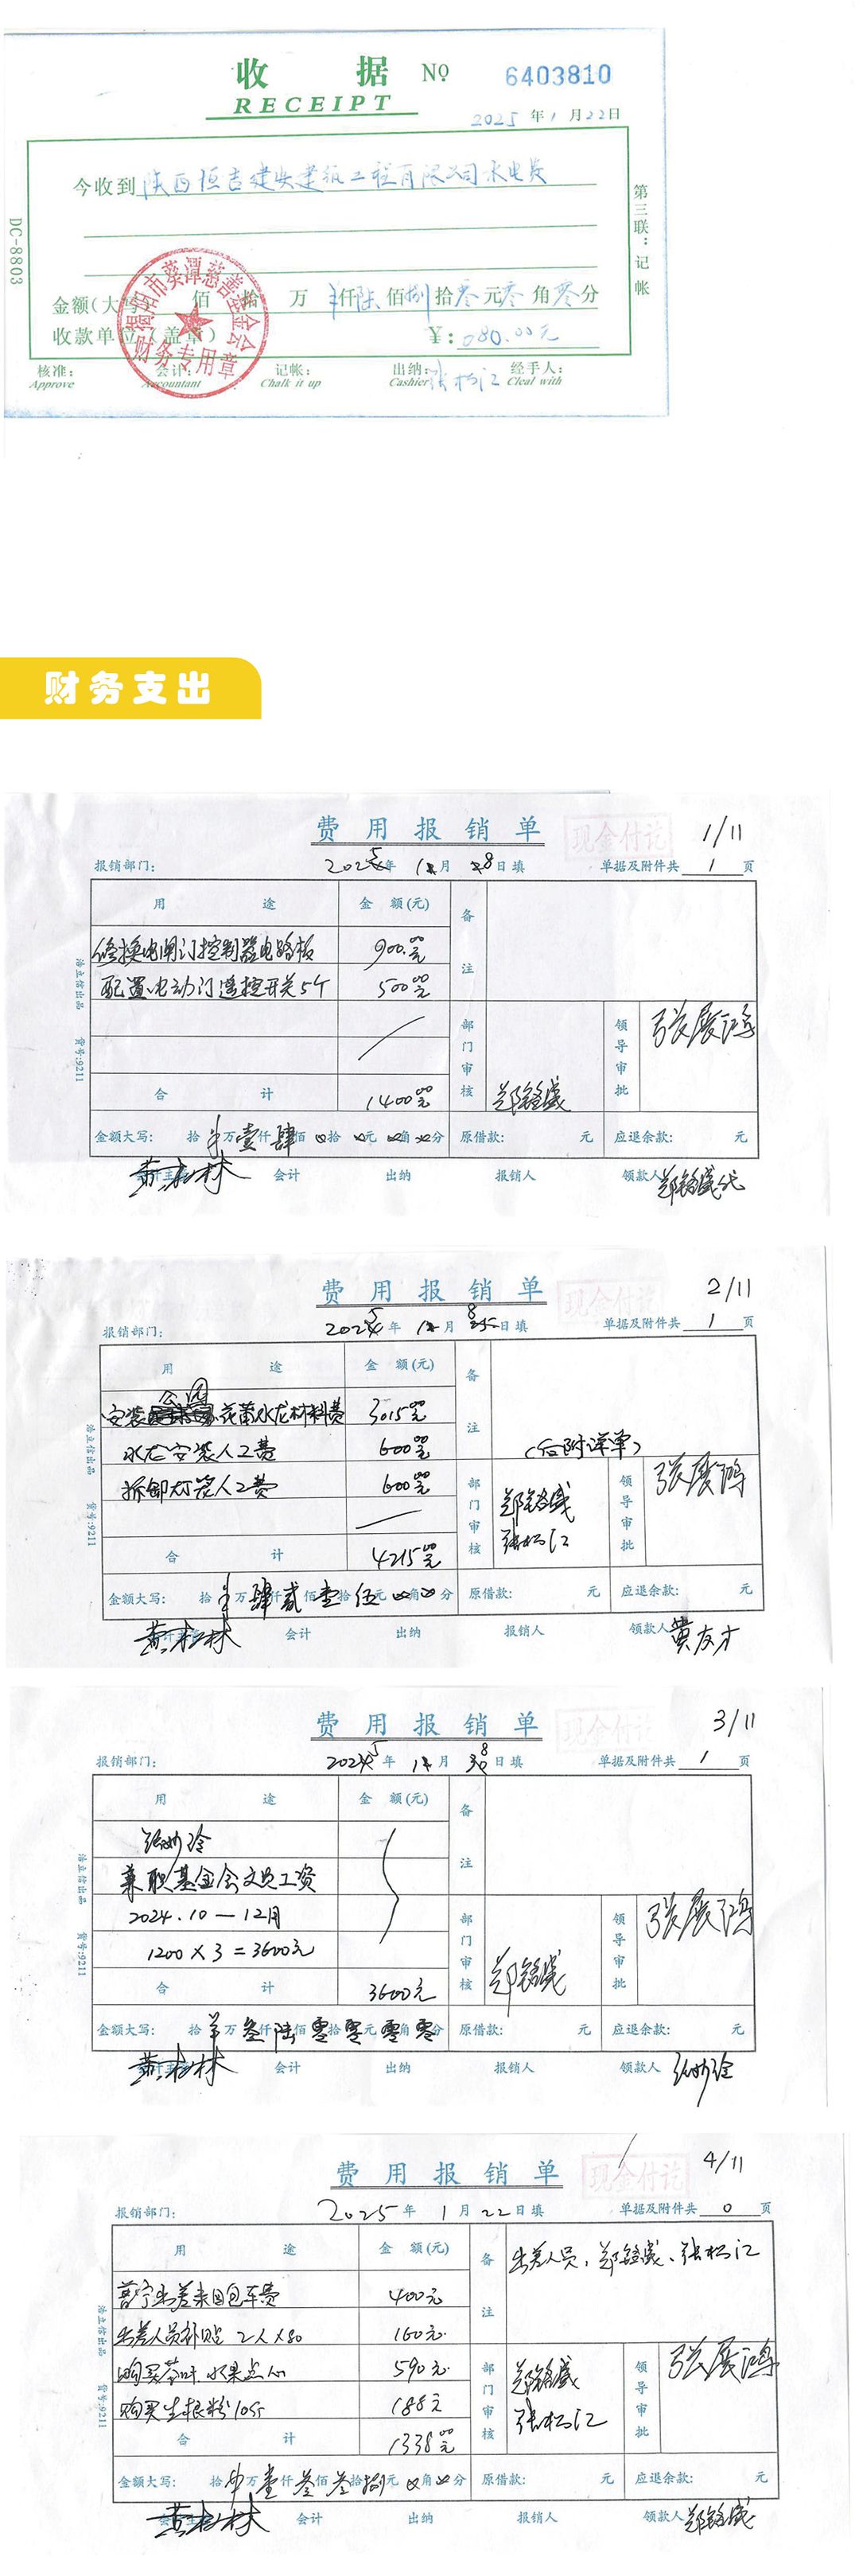 收 据 № 6403810
RECEIPT
2025 年 1 月 22 日
今收到 陕西恒吉建安建筑工程有限公司水电费
金额(大写) 佰 拾 万 仟 陆 佰 捌 拾 零 元 零 角 零 分
收款单位(盖章) ¥: 680.00元
核准: 会计: 记帐: 出纳: 张松江 经手人:
Approve Accountant Chalk it up Cashier Cleal with
DC-8803
第三联:记帐
揭阳市葵潭慈善基金会
财务专用章
财务支出
费 用 报 销 单 现金付讫 1/11
报销部门: 2025 年 1 月 8 日填 单据及附件共 1 页
用 途 金 额(元) 备注
修换电闸门控制器电路板 900.00元
配置电动门遥控开关5个 500.00元
合 计 1400.00元
部门审核 郑铭盛 领导审批 张展鸿
金额大写: 拾 万 壹 仟 肆 佰 拾 元 角 分 原借款: 元 应退余款: 元
会计主管 黄松林 会计 出纳 报销人 领款人 郑铭盛代
浩立信出品 货号:9211
费 用 报 销 单 现金付讫 2/11
报销部门: 2025 年 1 月 8 日填 单据及附件共 1 页
用 途 金 额(元) 备注
安装公园花莆水龙材料费 3015.00元
水龙安装人工费 600.00元 (后附详单)
拆卸灯笼人工费 600.00元
合 计 4215.00元
部门审核 郑铭盛 张松江 领导审批 张展鸿
金额大写: 拾 万 肆 仟 贰 佰 壹 拾 伍 元 角 分 原借款: 元 应退余款: 元
会计主管 黄松林 会计 出纳 报销人 领款人 黄友才
浩立信出品 货号:9211
费 用 报 销 单 现金付讫 3/11
报销部门: 2025 年 1 月 8 日填 单据及附件共 1 页
用 途 金 额(元) 备注
兼职基金会文员工资
2024.10—12月
1200×3=3600元
合 计 3600元
部门审核 郑铭盛 领导审批 张展鸿
金额大写: 拾 万 叁 仟 陆 佰 零 拾 零 元 零 角 零 分 原借款: 元 应退余款: 元
会计主管 黄松林 会计 出纳 报销人 领款人
浩立信出品 货号:9211
费 用 报 销 单 现金付讫 4/11
报销部门: 2025 年 1 月 22 日填 单据及附件共 0 页
用 途 金 额(元) 备注 出差人员:郑铭盛、张松江
普宁出差来回包车费 400元
出差人员补贴 2人×80 160元
购买茶叶.水果点心 590元
购买生根粉10斤 188元
合 计 1338.00元
部门审核 郑铭盛 张松江 领导审批 张展鸿
金额大写: 拾 万 壹 仟 叁 佰 叁 拾 捌 元 角 分 原借款: 元 应退余款: 元
会计主管 黄松林 会计 出纳 报销人 领款人 郑铭盛
浩立信出品 货号:9211